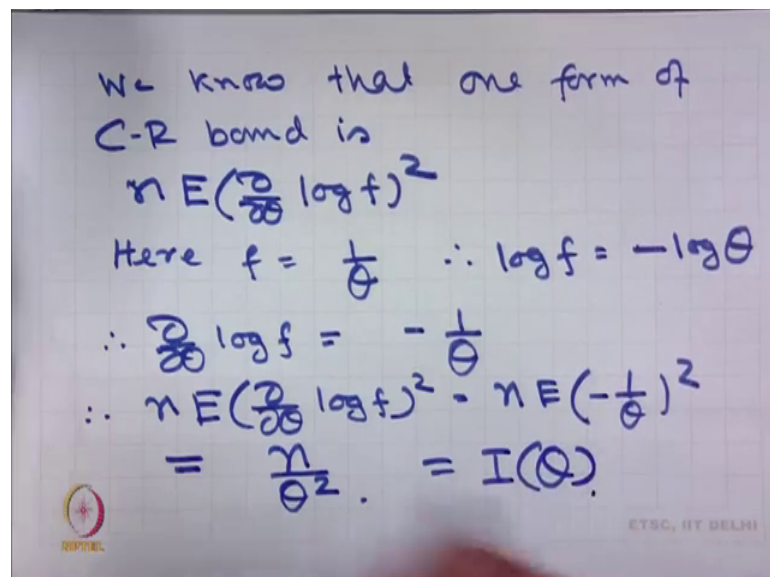 We know that one form of
C-R bound is
n E(∂/∂θ log f)²
Here f = 1/θ ∴ log f = - log θ
∴ ∂/∂θ log f = - 1/θ
∴ n E(∂/∂θ log f)² = n E(-1/θ)²
= n/θ². = I(θ).
NPTEL
ETSC, IIT DELHI